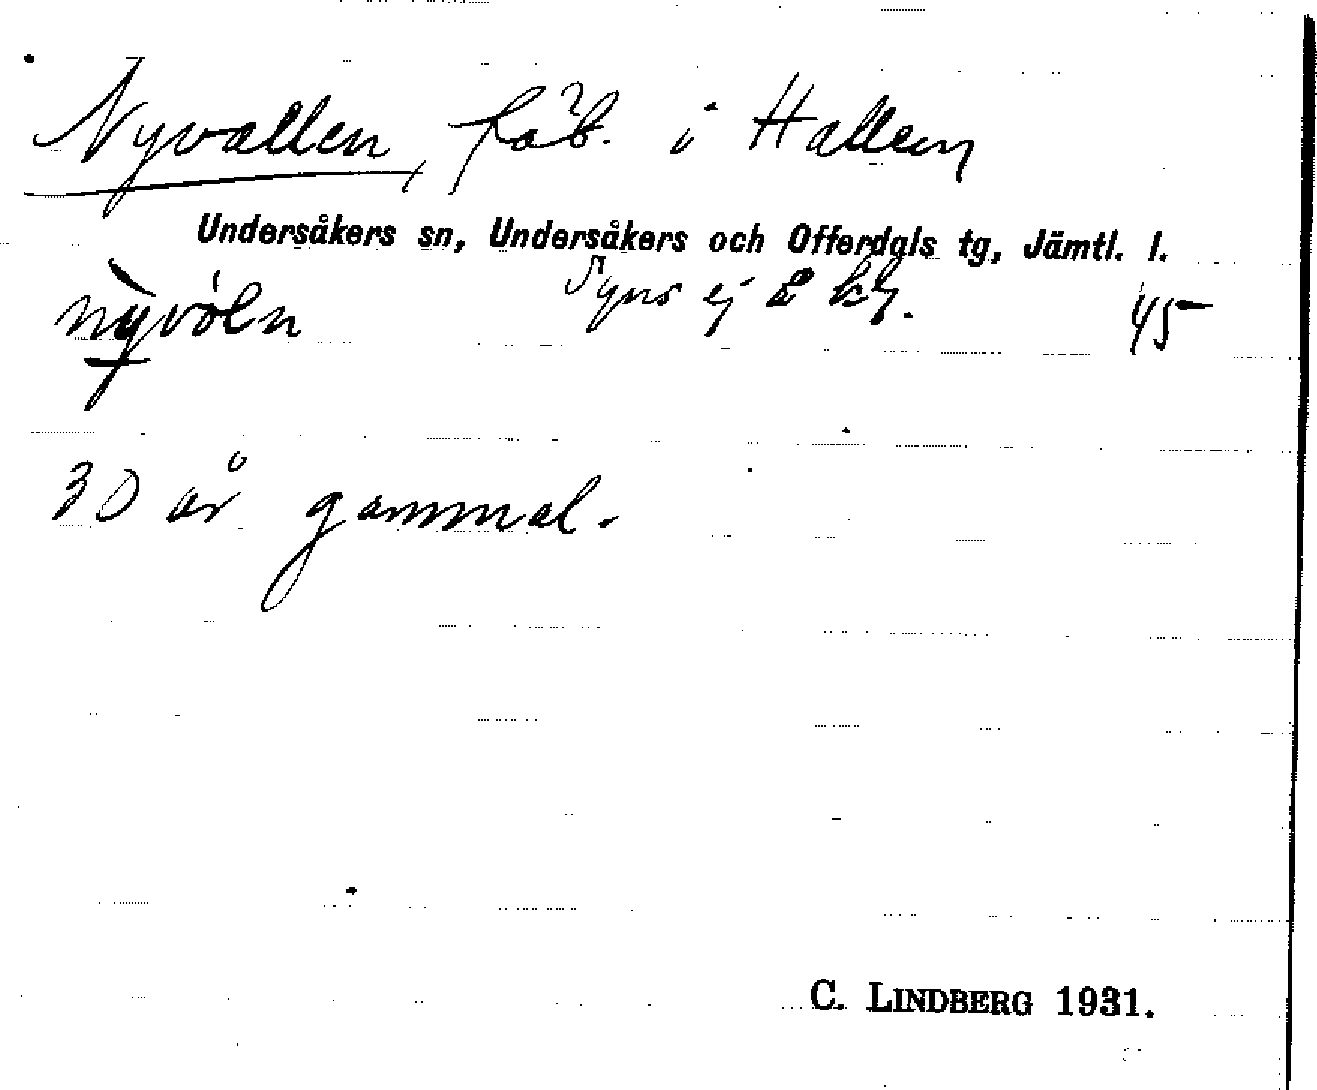 Nyvallen, fäb. i Hallen
Undersåkers sn, Undersåkers och Offerdals tg, Jämtl. l.
nỳvóln Syns ej å kb. 45
30 år gammal.
C. LINDBERG 1931.